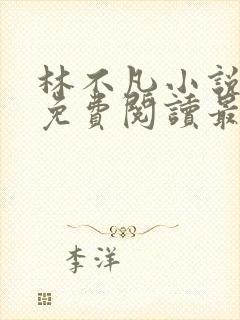 林不凡小說
免費閱讀最
李洋